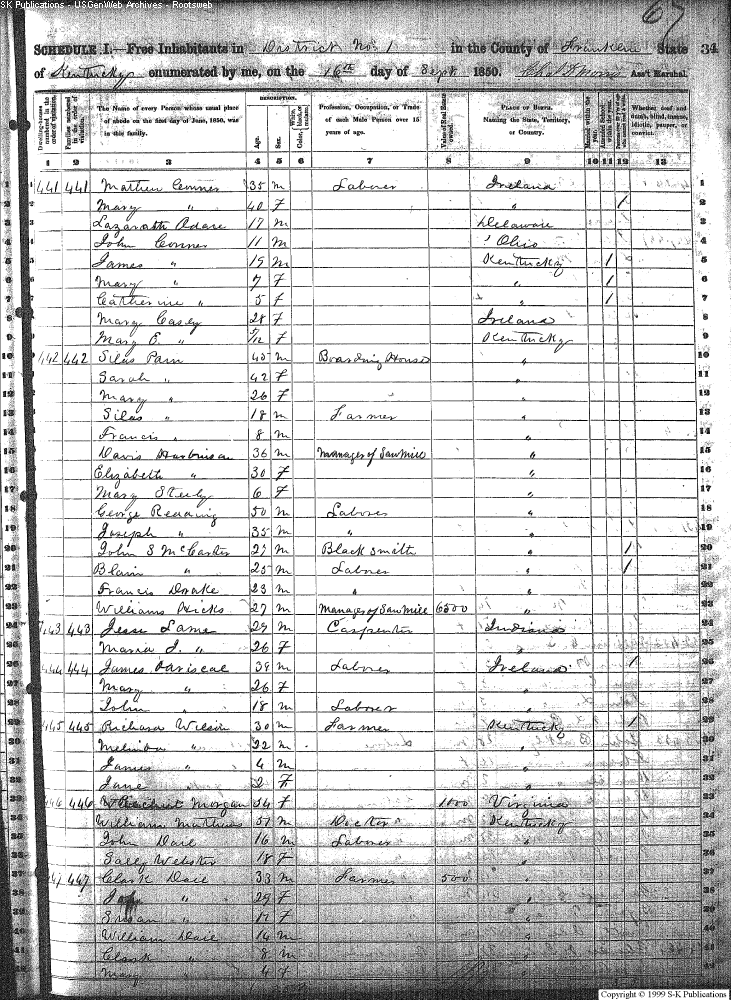 SK Publications - USGenWeb Archives - Rootsweb
67
SCHEDULE I.—Free Inhabitants in District No. 1 in the County of Franklin State 34
of Kentucky enumerated by me, on the 16th day of Sept 1850. Ass't Marshal.
Dwelling-houses numbered in the order of visitation. Families numbered in the order of visitation. The Name of every Person whose usual place of abode on the first day of June, 1850, was in this family. DESCRIPTION. Age. Sex. Color, White, black, or mulatto. Profession, Occupation, or Trade of each Male Person over 15 years of age. Value of Real Estate owned. PLACE OF BIRTH. Naming the State, Territory, or Country. Married within the year. Whether deaf and dumb, blind, insane, idiotic, pauper, or convict.
1 2 3 4 5 6 7 8 9 10 11 12 13
1 441 441 Mathew Conner 35 m Laborer Ireland 1
2 Mary " 40 f " 1 2
3 Lazarath Adare 17 m Delaware 3
4 John Conner 11 m Ohio 4
5 James " 15 m Kentucky 1 5
6 Mary " 7 f " 1 6
7 Catherine " 5 f " 1 7
8 Mary Casey 28 f Ireland 8
9 Mary E. " /12 f Kentucky 9
10 442 442 Silas Parn 45 m Boarding House " 10
11 Sarah " 42 f " 11
12 Mary " 26 f " 12
13 Silas " 18 m Farmer " 13
14 Francis " 8 m " 14
15 Davis 36 m Manager of Saw Mill " 15
16 Elizabeth " 30 f " 16
17 Mary Steely 6 f " 17
18 George Redding 50 m Laborer " 18
19 Joseph " 35 m " " 19
20 John S McCarter 27 m Black Smith " 1 20
21 Blain " 25 m Laborer " 1 21
22 Francis Drake 23 m " " 22
23 Williams Hicks 27 m Manager of Saw Mill 6500 " 23
24 443 443 Jesse Lame 29 m Carpenter Indiana 24
25 Maria J. " 26 f " 25
26 444 444 James 38 m Laborer Ireland 1 26
27 Mary " 26 f " 27
28 John " 18 m Laborer " 28
29 445 445 Richard Wilson 30 m Farmer Kentucky 1 29
30 Melinda " 22 m " 30
31 James " 4 m " 31
32 Jane " 2 f " 32
33 446 446 Morgan 54 f 1800 Virginia 33
34 William Mathews 57 m Doctor Kentucky 34
35 John Dail 16 m Laborer " 35
36 Sally Webster 18 f " 36
37 447 447 Clark Dail 33 m Farmer 500 " 37
38 " 29 f " 38
39 Susan " 17 f " 39
40 William Dail 14 m " 40
41 Clark " 8 m " 41
42 Mary " 4 f "
Copyright © 1999 S-K Publications